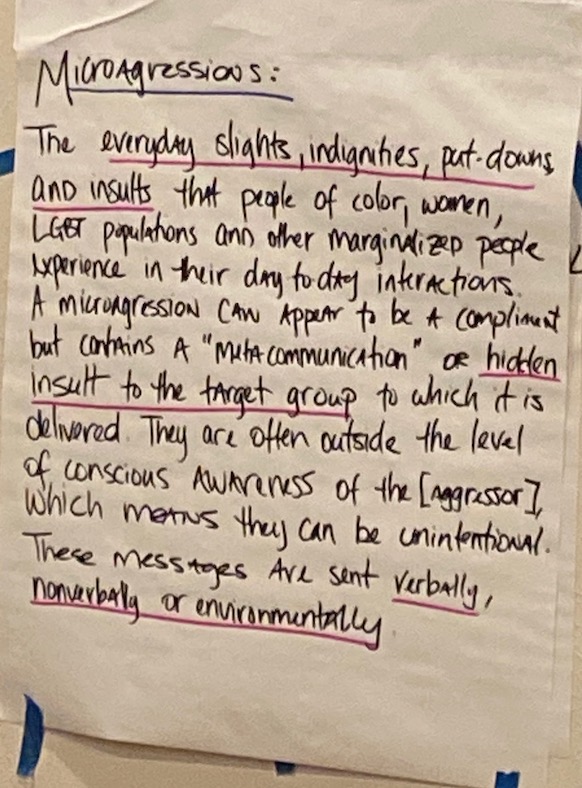 Microagressions:
The everyday slights, indignities, put-downs,
and insults that people of color, women,
LGBT populations and other marginalized people
experience in their day to day interactions.
A microagression can appear to be a compliment
but contains a "metacommunication" or hidden
insult to the target group to which it is
delivered. They are often outside the level
of conscious awareness of the [aggressor],
which means they can be unintentional.
These messages are sent verbally,
nonverbally or environmentally.